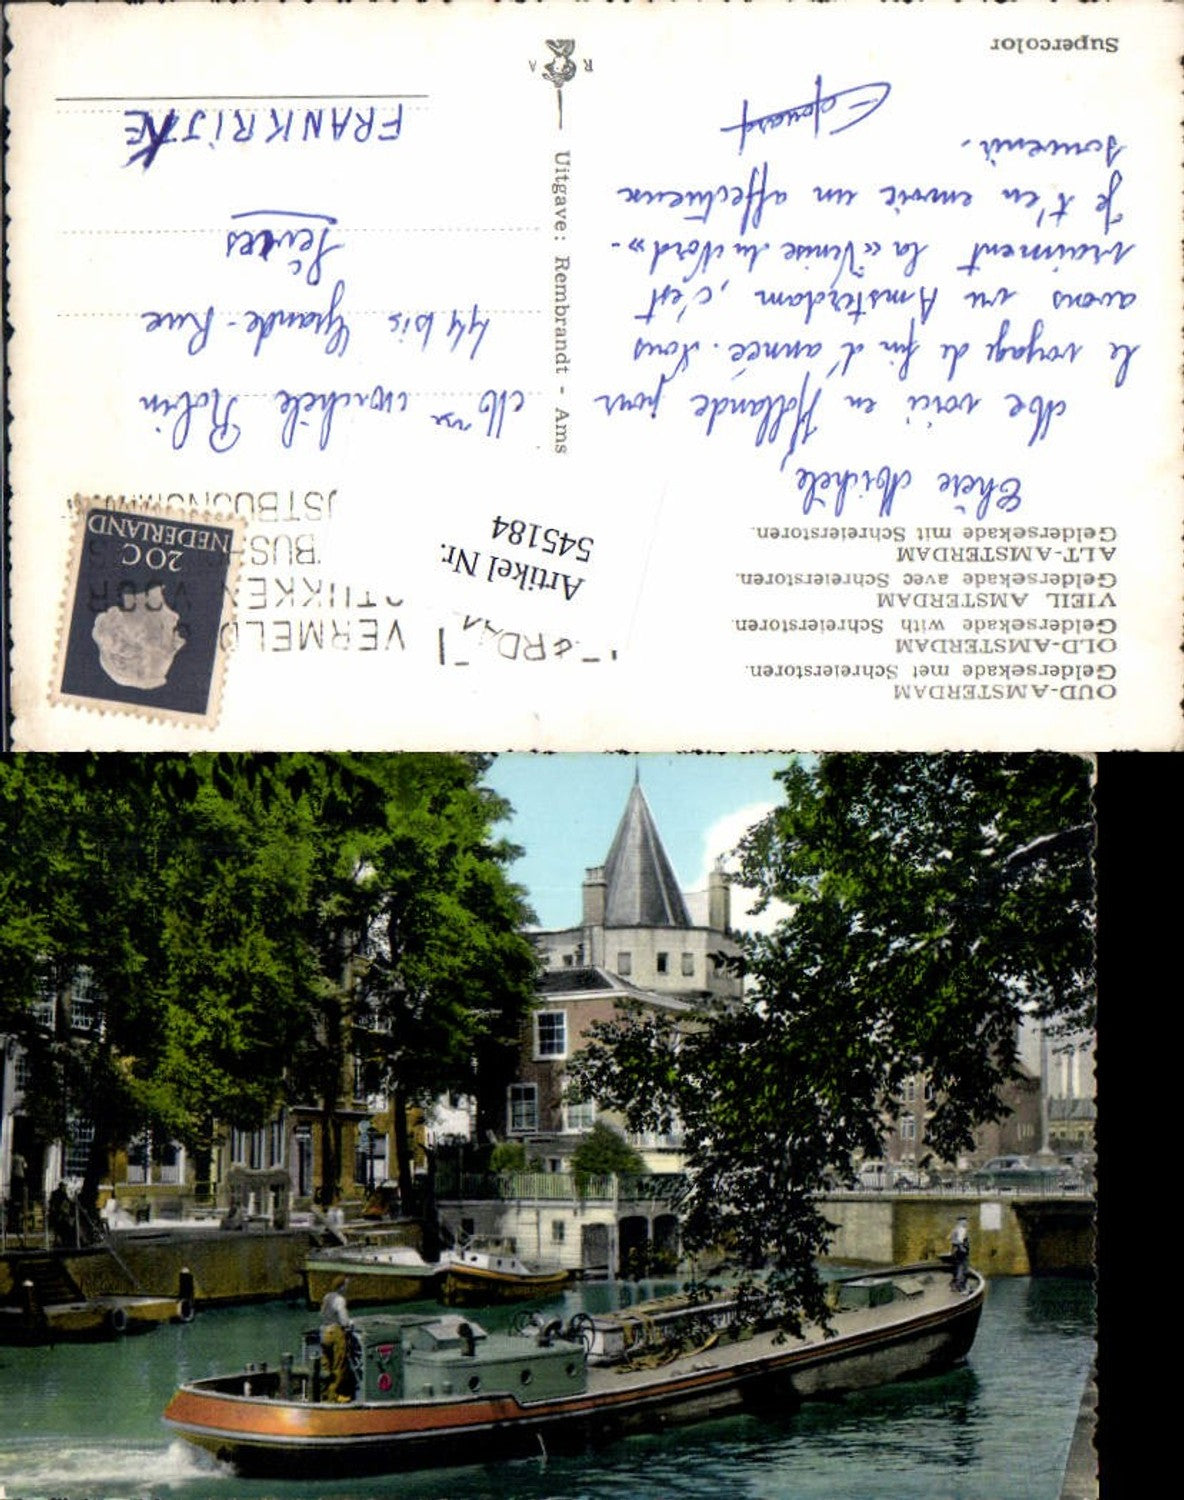 OUD-AMSTERDAM
Geldersekade met Schreierstoren.
OLD-AMSTERDAM
Geldersekade with Schreierstoren.
VIEIL AMSTERDAM
Geldersekade avec Schreierstoren.
ALT-AMSTERDAM
Geldersekade mit Schreierstoren.
Chère Michèle,
Me voici en Hollande pour
le voyage de fin d'année. Nous
avons vu Amsterdam, c'est
vraiment la «Venise du Nord» -
Je t'en envoie un affectueux
souvenir.
Edouard
Supercolor
Artikel Nr.
545184
Uitgave: Rembrandt - Ams
R A
VERMELD
BUS
NEDERLAND
20 C
Michèle Robin
44 bis Grande-Rue
Sèvres
FRANKRIJKE